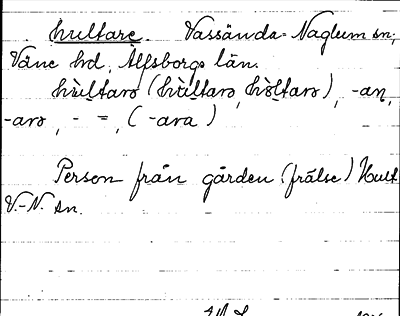 hultare. Vassända-Naglum sn,
Väne hd, Älfsborgs län.
hùltarə (hùltarə, hòltarə), -an,
-arə, - = , (-ara)
Person från gården (frälse) Hult
V.-N. sn.